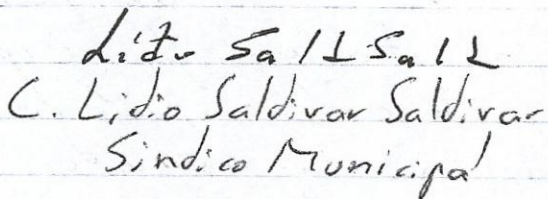 Lidio Sald Sald
C. Lidio Saldivar Saldivar
Sindico Municipal